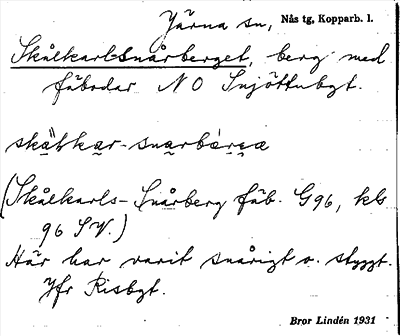 Järna sn, Nås tg, Kopparb. l.
Skålkarlsnårberget, berg med
fäbodar NO Snjöttubgt.
skål'kar-snarbärga
(Skålkarls-Snårberg fäb. G96, kls
96 SV.)
Här har varit snårigt o. styggt.
Jfr Risbgt.
Bror Lindén 1931